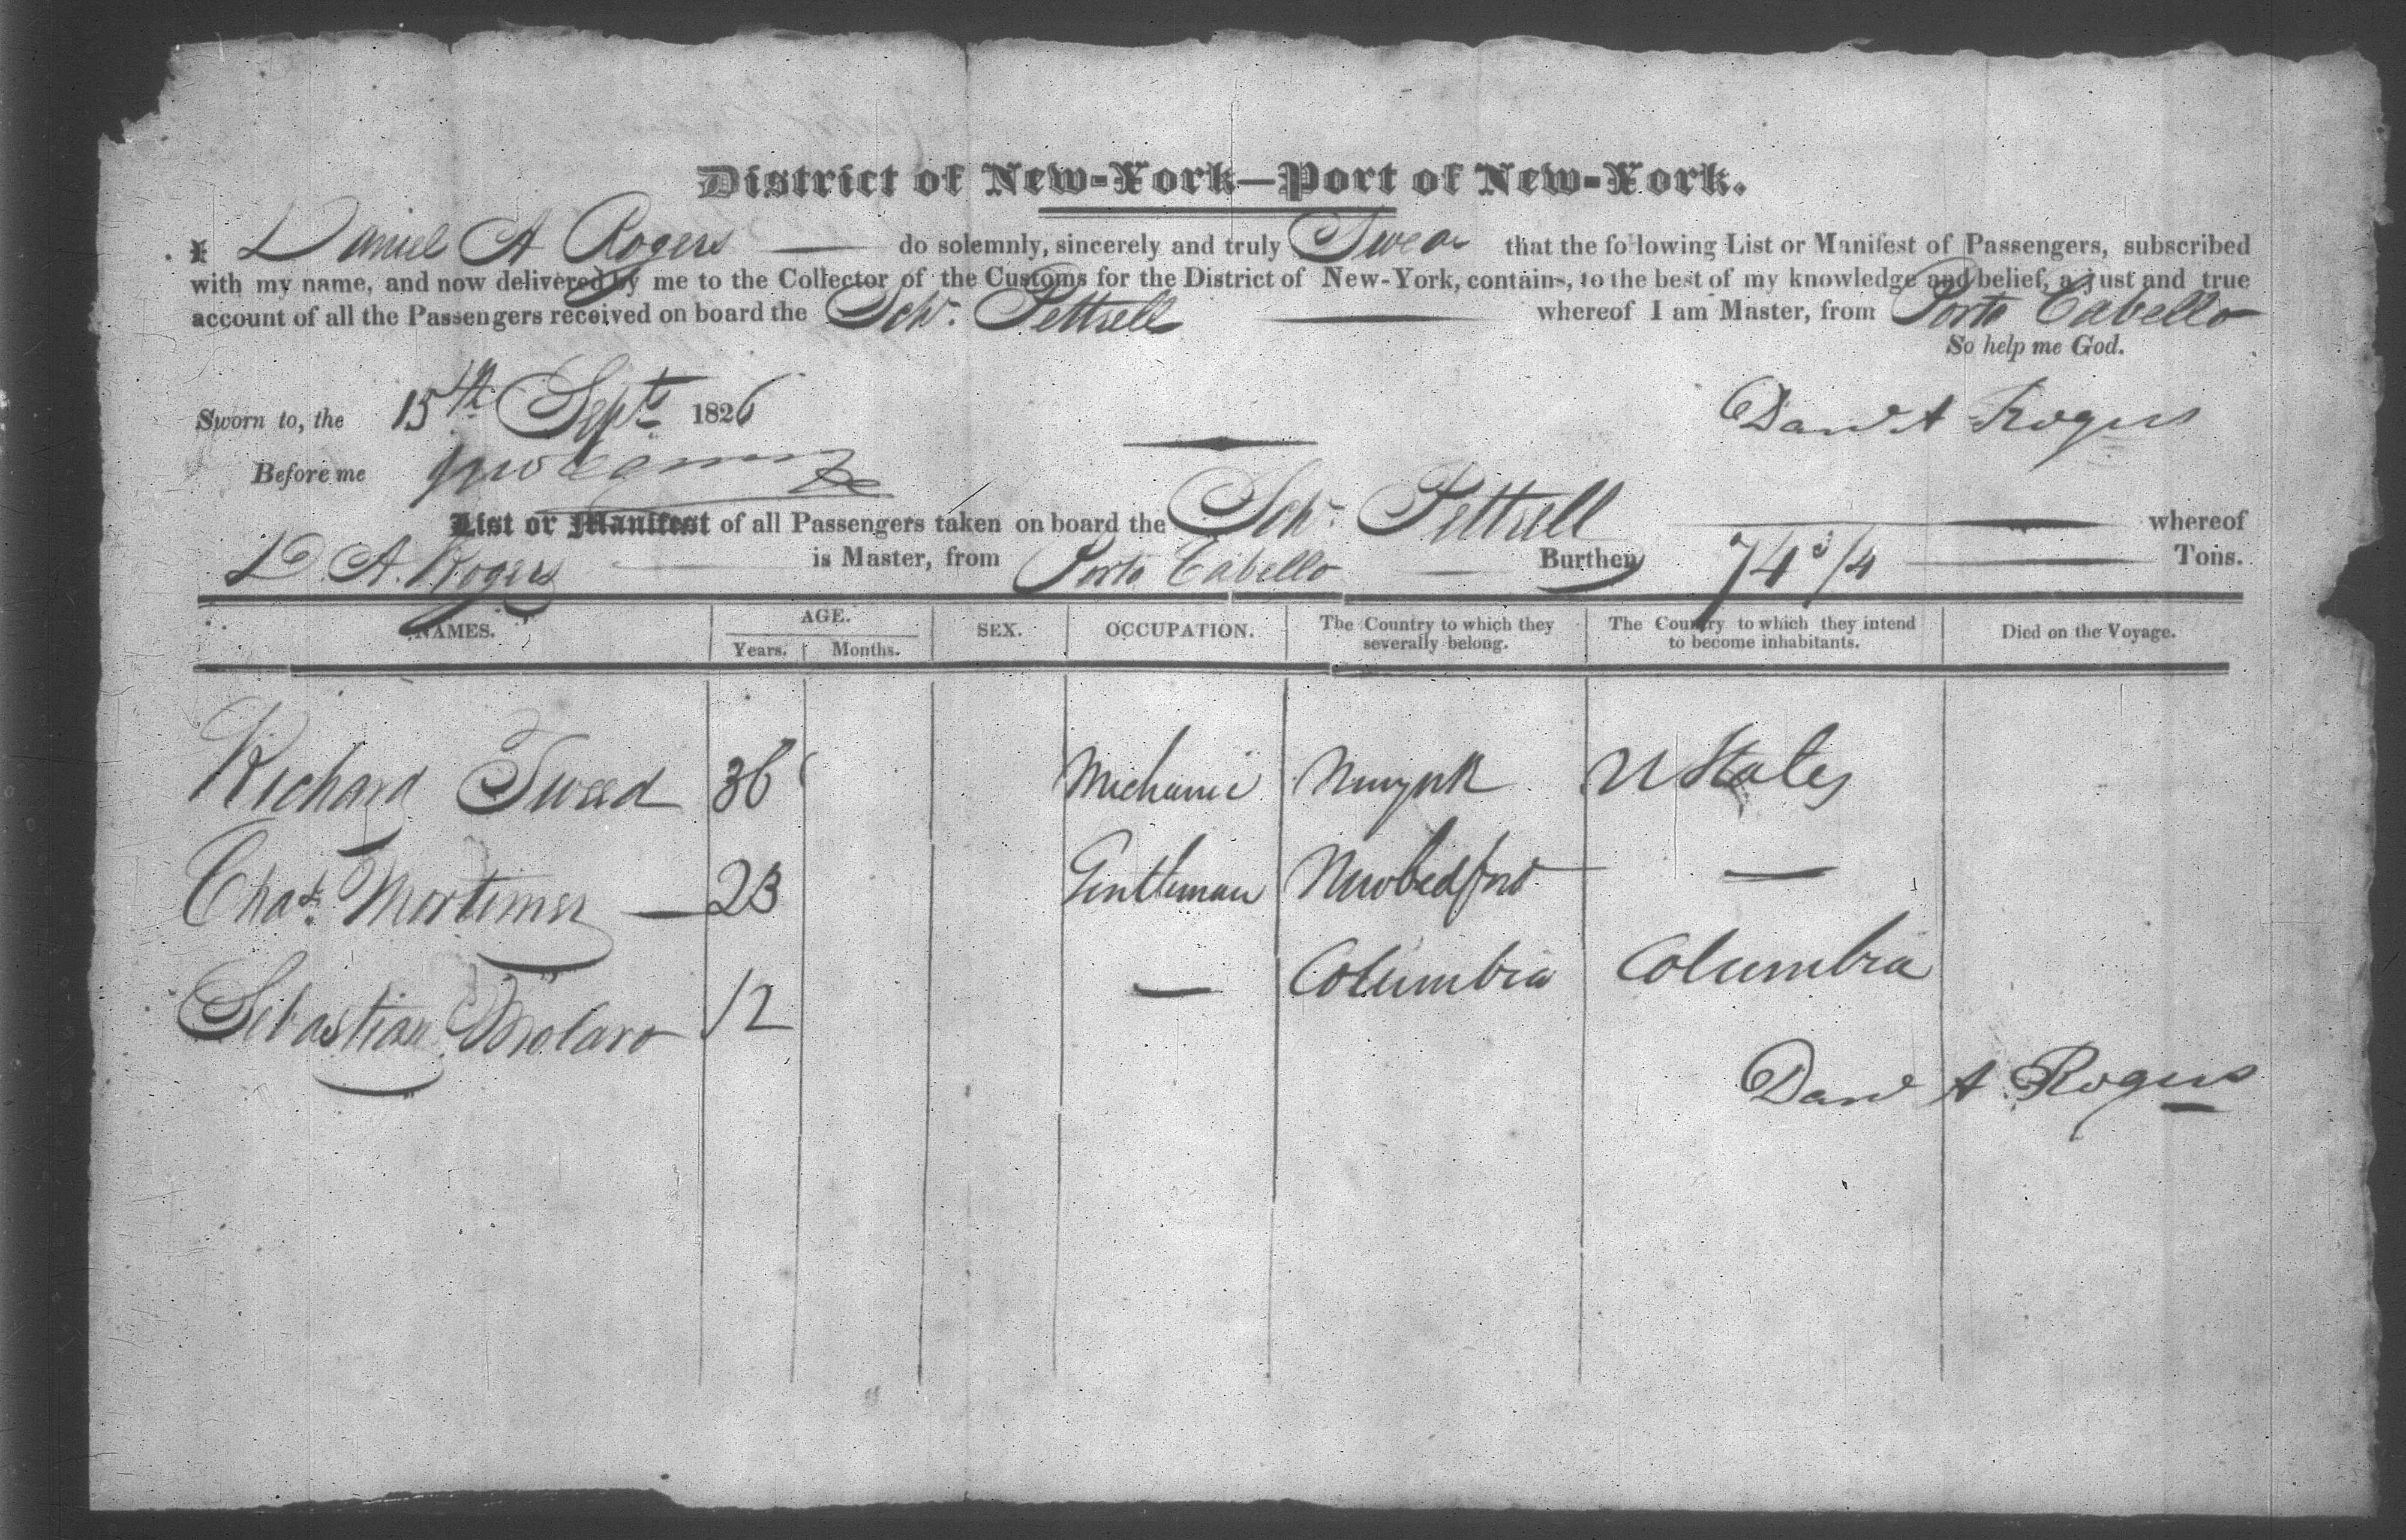 District of New-York—Port of New-York.
I Daniel A Rogers — do solemnly, sincerely and truly Swear that the following List or Manifest of Passengers, subscribed
with my name, and now delivered by me to the Collector of the Customs for the District of New-York, contains, to the best of my knowledge and belief, a just and true
account of all the Passengers received on board the Schr. Pettrell — whereof I am Master, from Porto Cabello
So help me God.
Sworn to, the 15th Sept 1826
Danl A Rogers
Before me
List or Manifest of all Passengers taken on board the Schr. Pettrell — whereof
D. A. Rogers — is Master, from Porto Cabello — Burthen 74 3/4 — Tons.
NAMES. AGE. Years. Months. SEX. OCCUPATION. The Country to which they severally belong. The Country to which they intend to become inhabitants. Died on the Voyage.
Richard Tweed 36 Mechanic Newyork U States
Chas. Mortimer — 23 Gentleman Newbedford —
Sebastian Molaro 12 — Columbia Columbia
Danl A Rogers